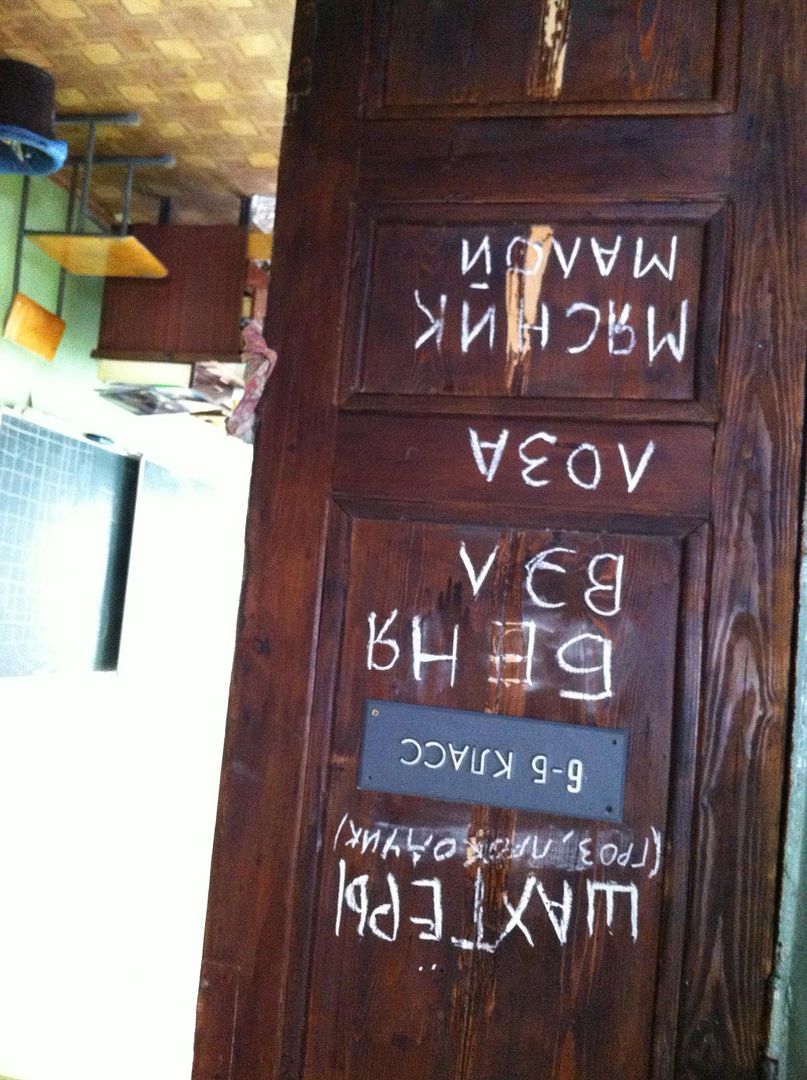 ШАХТЁРЫ
(ГРОЗ, ПРОХОДЧИК)
6-Б КЛАСС
БЕНЯ
ВЭЛ
ЛОЗА
МЯСНИК
МАЛОЙ